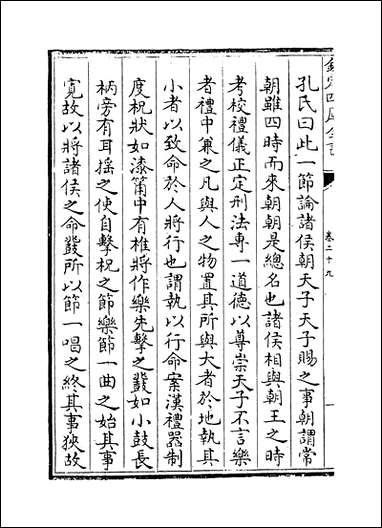 欽定四庫全書
卷二十九
孔氏曰此一節論諸侯朝天子天子賜之事朝謂常
朝雖四時而來朝朝是總名也諸侯相與朝王之時
考校禮儀正定刑法專一道德以尊崇天子不言樂
者禮中兼之凡與人之物置其所與大者於地執其
小者以致命於人將行也謂執以行命案漢禮器制
度柷狀如漆筩中有椎將作樂先擊之鼗如小鼓長
柄旁有耳搖之使自擊柷之節樂節一曲之始其事
寛故以將諸侯之命鼗所以節一唱之終其事狹故